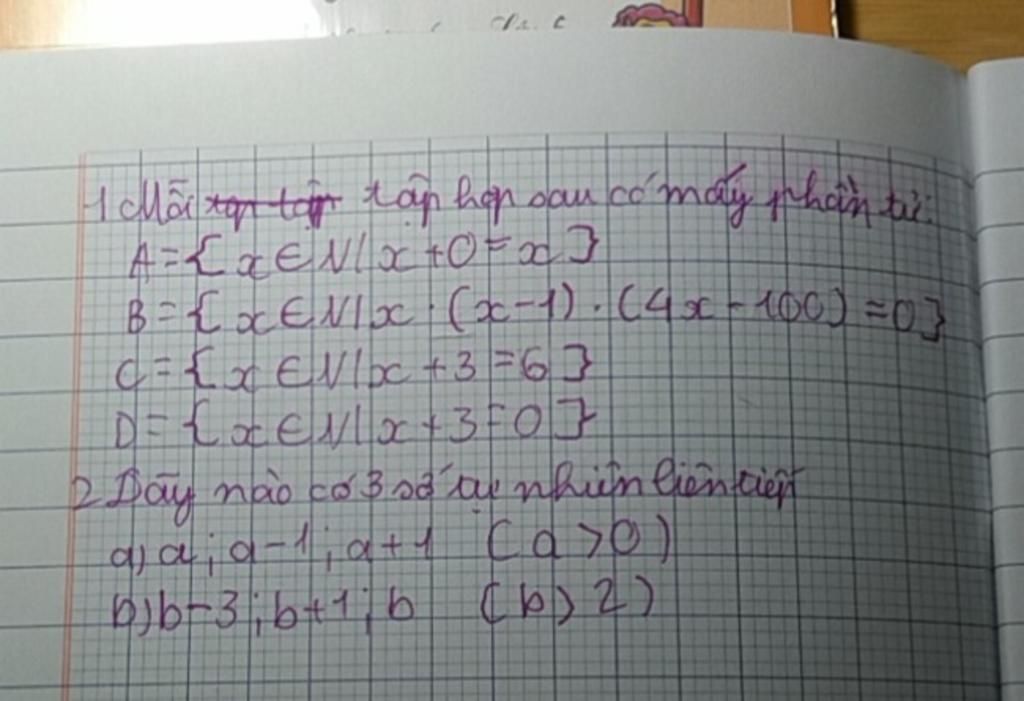 1 Mỗi tập hợp sau có mấy phần tử:
A = { x ∈ N / x + 0 = x }
B = { x ∈ N / x . (x - 1) . (4x - 100) = 0 }
C = { x ∈ N / x + 3 = 6 }
D = { x ∈ N / x + 3 = 0 }
2 Dãy nào có 3 số tự nhiên liên tiếp
a) a ; a - 1 ; a + 1 ( a > 0 )
b) b - 3 ; b + 1 ; b ( b > 2 )